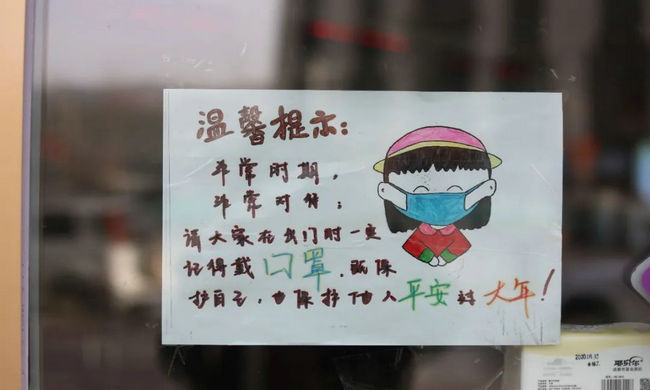 温馨提示:
非常时期,
非常对待;
请大家在出门时一定
记得戴口罩,既保
护自己,也保护他人平安过大年!